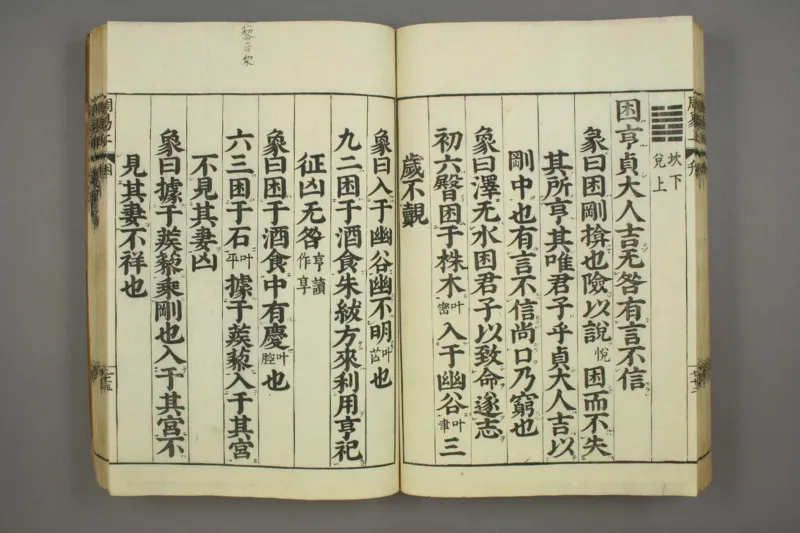 坎下
兌上
困亨貞大人吉无咎有言不信
彖曰困剛揜也險以說悅困而不失
其所亨其唯君子乎貞大人吉以
剛中也有言不信尚口乃窮也
象曰澤无水困君子以致命遂志
初六臀困于株木叶密入于幽谷叶聿三
歲不覿
象曰入于幽谷幽不明叶也
九二困于酒食朱紱方來利用亨祀
征凶无咎亨讀作享
象曰困于酒食中有慶叶腔也
六三困于石叶平據于蒺藜入于其宮
不見其妻凶
象曰據于蒺藜乘剛也入于其宮不
見其妻不祥也